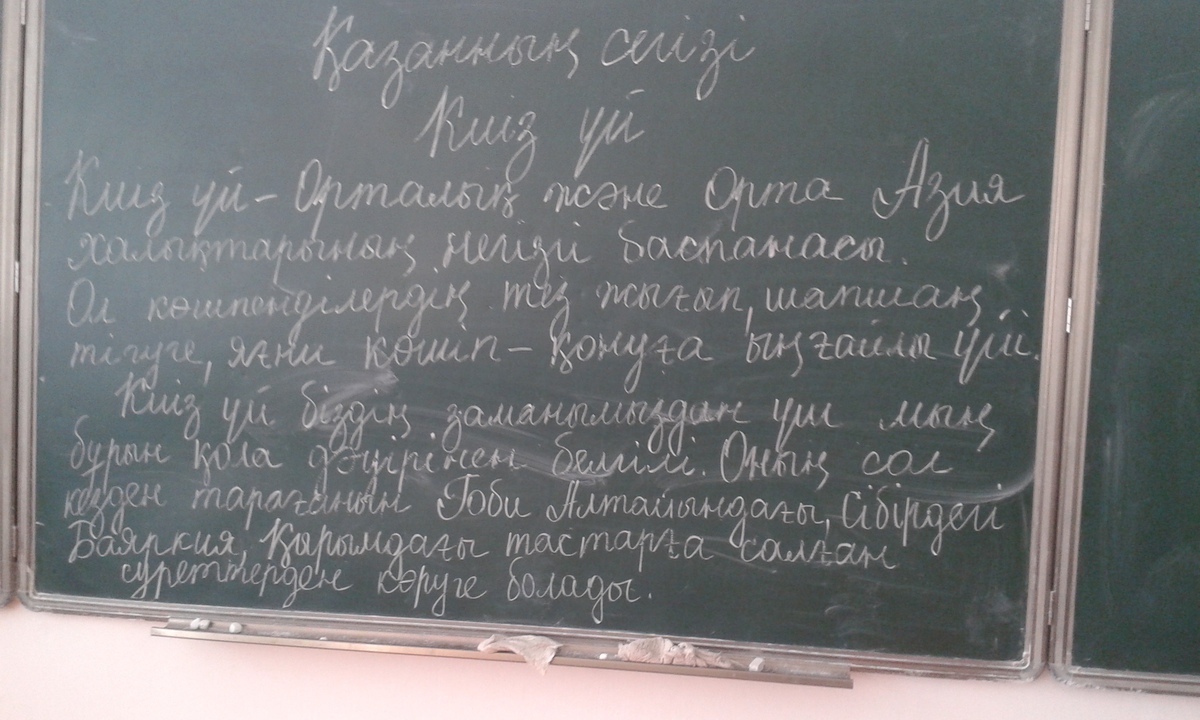 Қазанның сегізі
Киіз үй
Киіз үй – Орталық және Орта Азия
халықтарының негізгі баспанасы.
Ол көшпенділердің тез жығып, шапшаң
тігуге, яғни көшіп – қонуға ыңғайлы үйі.
Киіз үй біздің заманымыздан үш мың
бұрын қола дәуірінен белгілі. Оның сол
кезден тарағанын Гоби Алтайындағы, Сібірдегі
Баяркия, Қырымдағы тастарға салған
суреттерден көруге болады.